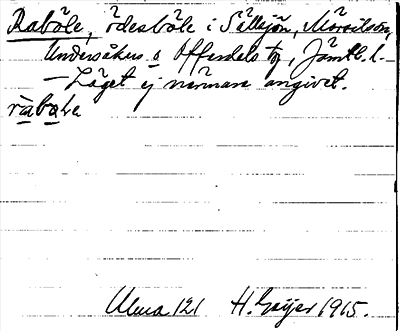 Raböle, ödesböle i Sällsjön, Mörsilson,
Undersåkers o Offerdals tg, Jämtl. l.
— Läget ej närmare angivet.
ràbəle
Ulma 121 H. Geijer 1915.